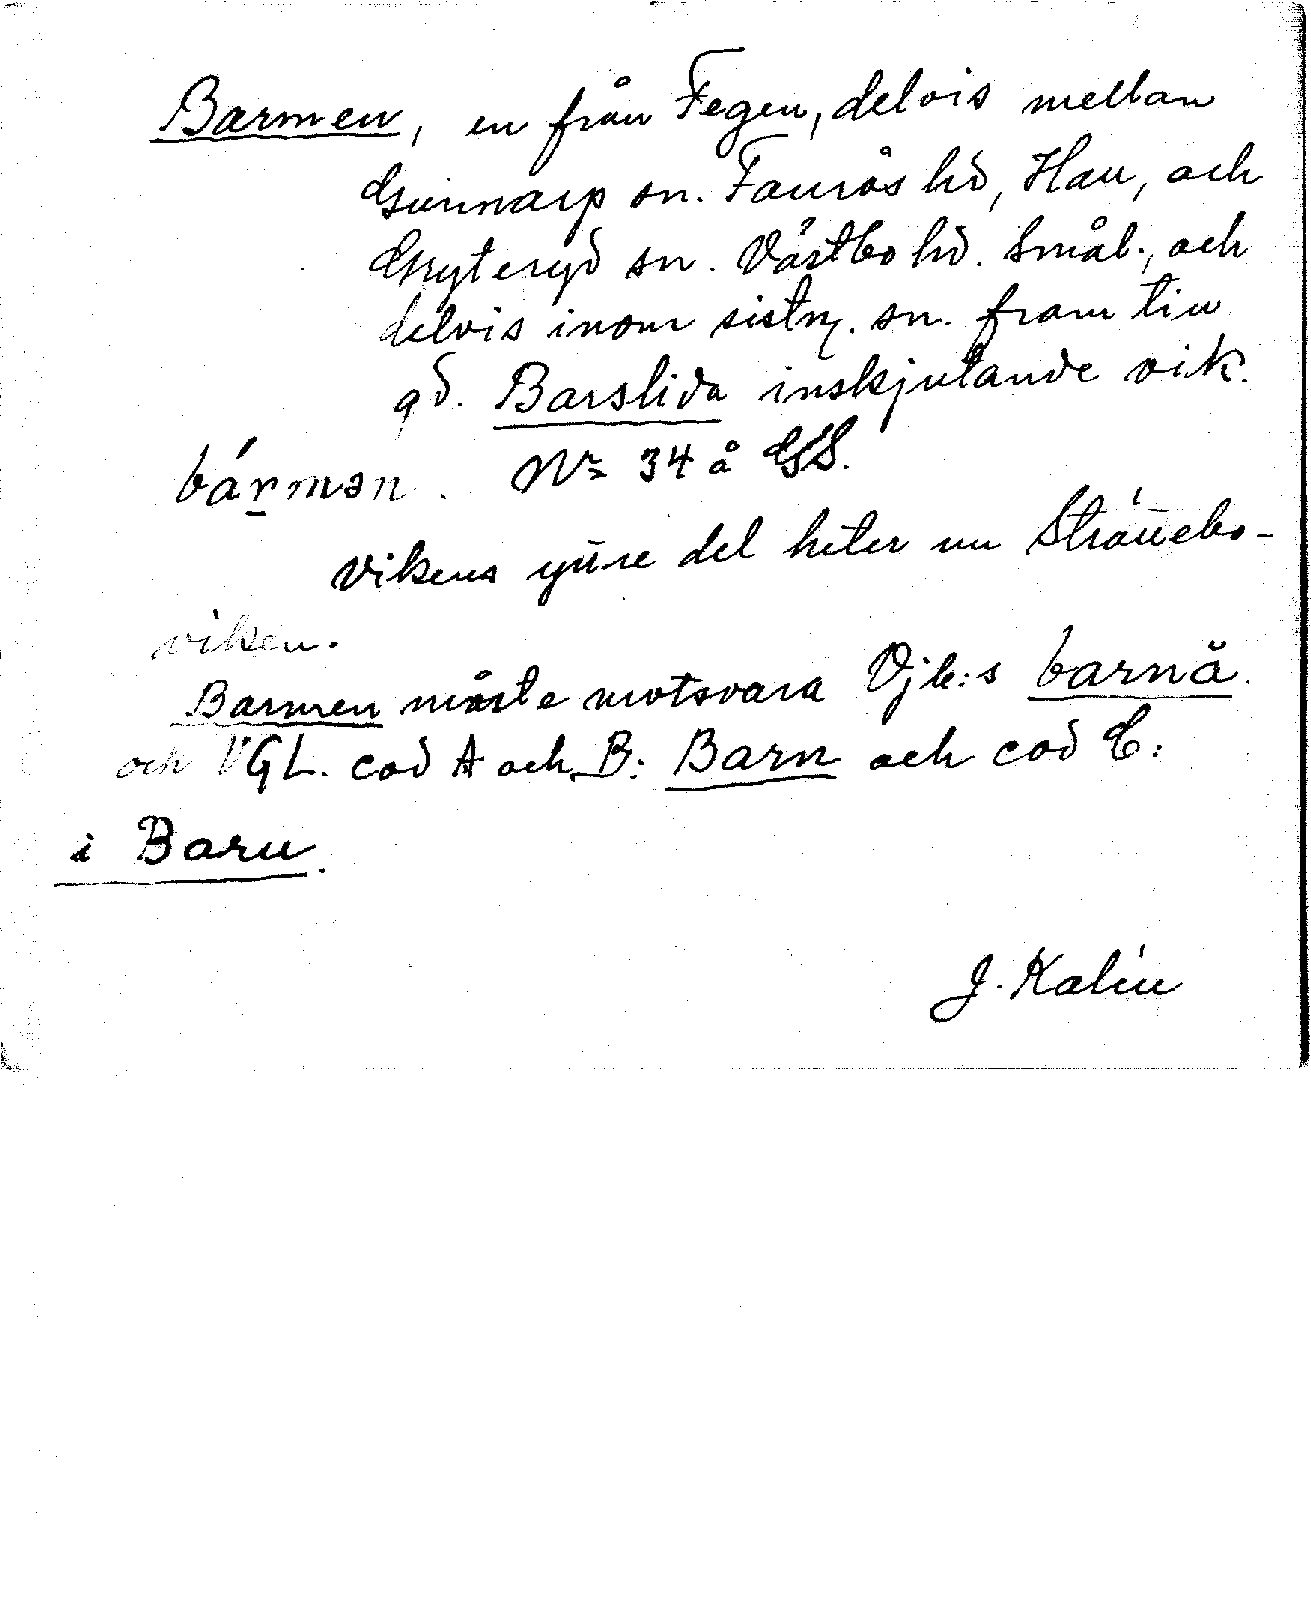 Barmen, en från Fegen, delvis mellan
Gunnarp sn. Faurås hd, Hall, och
Gryteryd sn. Västbo hd. Smål., och
delvis inom sistn. sn. fram till
gd. Barslida inskjutande vik.
bármən. Nr 34 å GSS.
Vikens yttre del heter nu Strättebo-
viken.
Barmen måste motsvara Vjb:s barnä.
och VGL. cod A och B: Barn och cod C:
i Baru.
J. Kalén